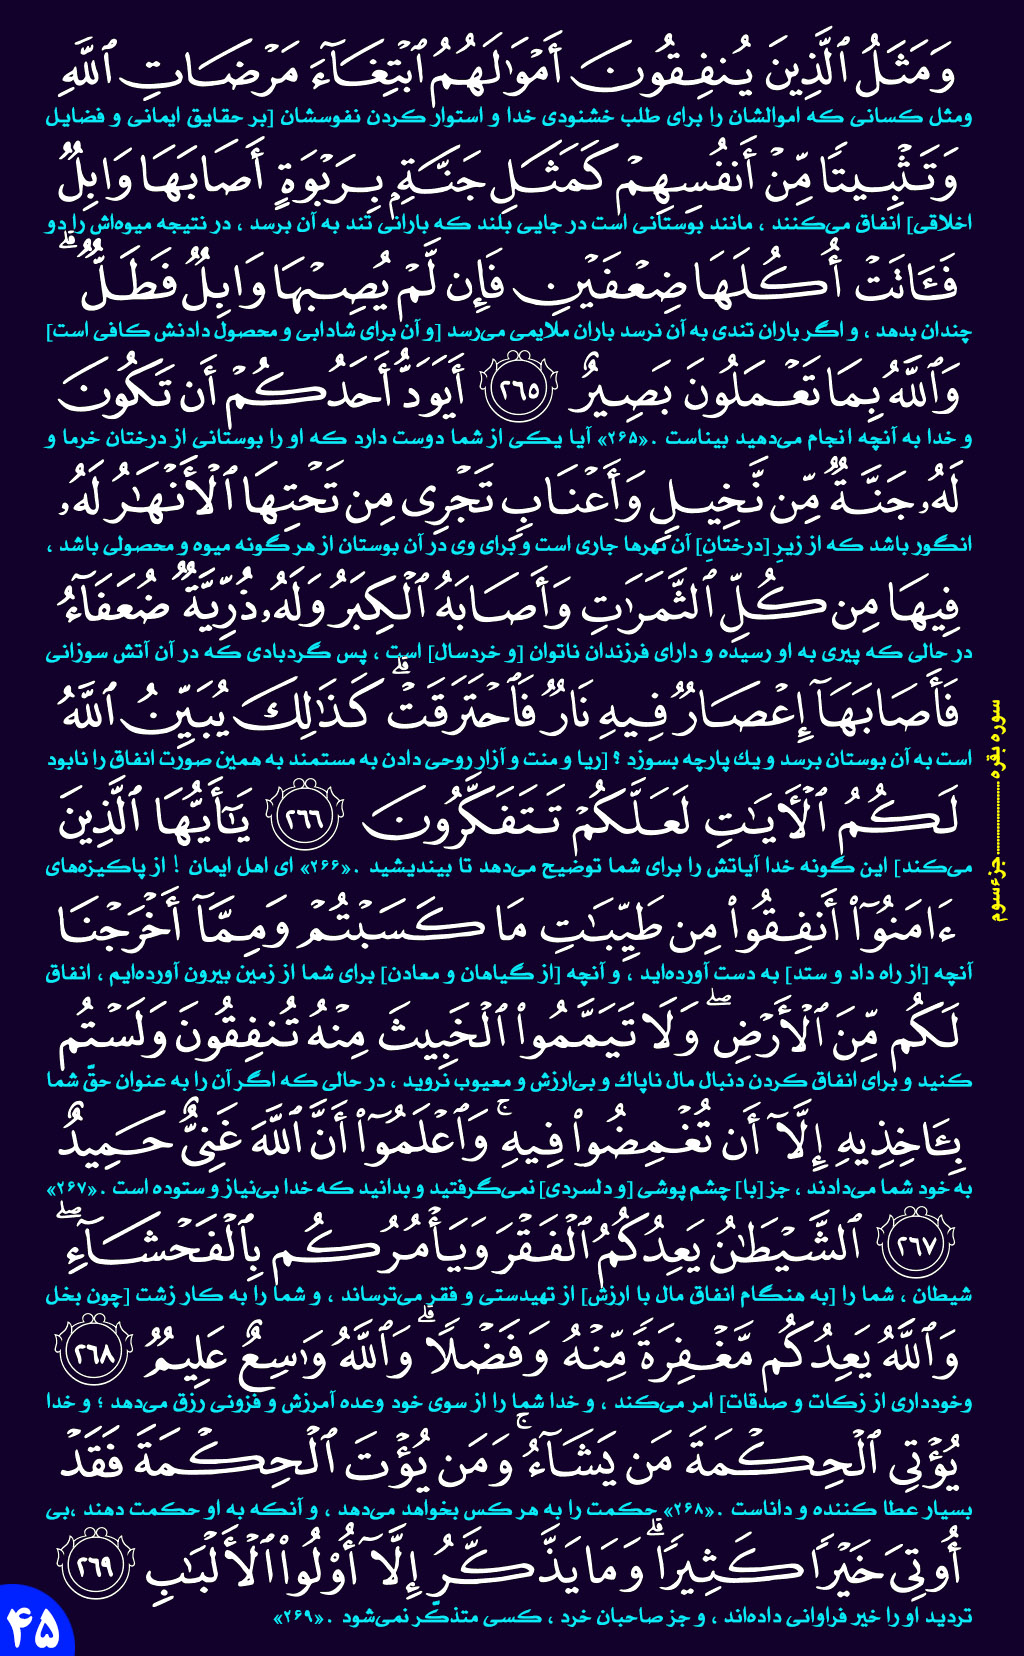 وَمَثَلُ ٱلَّذِينَ يُنفِقُونَ أَمْوَٰلَهُمُ ٱبْتِغَآءَ مَرْضَاتِ ٱللَّهِ
ومثل کسانی که اموالشان را برای طلب خشنودی خدا و استوار کردن نفوسشان [بر حقایق ایمانی و فضایل
وَتَثْبِيتًا مِّنْ أَنفُسِهِمْ كَمَثَلِ جَنَّةٍۭ بِرَبْوَةٍ أَصَابَهَا وَابِلٌ
اخلاقی] انفاق می‌کنند ، مانند بوستانی است در جایی بلند که بارانی تند به آن برسد ، در نتیجه میوه‌اش را دو
فَـَٔاتَتْ أُكُلَهَا ضِعْفَيْنِ فَإِن لَّمْ يُصِبْهَا وَابِلٌ فَطَلٌّ ۗ
چندان بدهد ، و اگر باران تندی به آن نرسد باران ملایمی می‌رسد [و آن برای شادابی و محصول دادنش کافی است]
وَٱللَّهُ بِمَا تَعْمَلُونَ بَصِيرٌ ٢٦٥ أَيَوَدُّ أَحَدُكُمْ أَن تَكُونَ
و خدا به آنچه انجام می‌دهید بیناست .«۲۶۵» آیا یکی از شما دوست دارد که او را بوستانی از درختان خرما و
لَهُۥ جَنَّةٌ مِّن نَّخِيلٍ وَأَعْنَابٍ تَجْرِى مِن تَحْتِهَا ٱلْأَنْهَـٰرُ لَهُۥ
انگور باشد که از زیرِ [درختانِ] آن نهرها جاری است و برای وی در آن بوستان از هر گونه میوه و محصولی باشد ،
فِيهَا مِن كُلِّ ٱلثَّمَرَٰتِ وَأَصَابَهُ ٱلْكِبَرُ وَلَهُۥ ذُرِّيَّةٌ ضُعَفَآءُ
در حالی که پیری به او رسیده و دارای فرزندان ناتوان [و خردسال] است ، پس گردبادی که در آن آتش سوزانی
فَأَصَابَهَآ إِعْصَارٌ فِيهِ نَارٌ فَٱحْتَرَقَتْ ۗ كَذَٰلِكَ يُبَيِّنُ ٱللَّهُ
است به آن بوستان برسد و یك پارچه بسوزد ؟ [ریا و منت و آزار روحی دادن به مستمند به همین صورت انفاق را نابود
لَكُمُ ٱلْـَٔايَـٰتِ لَعَلَّكُمْ تَتَفَكَّرُونَ ٢٦٦ يَـٰٓأَيُّهَا ٱلَّذِينَ
می‌کند] این گونه خدا آیاتش را برای شما توضیح می‌دهد تا بیندیشید .«۲۶۶» ای اهل ایمان ! از پاکیزه‌های
ءَامَنُوٓا۟ أَنفِقُوا۟ مِن طَيِّبَـٰتِ مَا كَسَبْتُمْ وَمِمَّآ أَخْرَجْنَا
آنچه [از راه داد و ستد] به دست آورده‌اید ، و آنچه [از گیاهان و معادن] برای شما از زمین بیرون آورده‌ایم ، انفاق
لَكُم مِّنَ ٱلْأَرْضِ ۖ وَلَا تَيَمَّمُوا۟ ٱلْخَبِيثَ مِنْهُ تُنفِقُونَ وَلَسْتُم
کنید و برای انفاق کردن دنبال مال ناپاك و بی‌ارزش و معیوب نروید ، در حالی که اگر آن را به عنوان حقّ شما
بِـَٔاخِذِيهِ إِلَّآ أَن تُغْمِضُوا۟ فِيهِ ۚ وَٱعْلَمُوٓا۟ أَنَّ ٱللَّهَ غَنِىٌّ حَمِيدٌ
به خود شما می‌دادند ، جز [با] چشم پوشی [و دلسردی] نمی‌گرفتید و بدانید که خدا بی‌نیاز و ستوده است .«۲۶۷»
٢٦٧ ٱلشَّيْطَـٰنُ يَعِدُكُمُ ٱلْفَقْرَ وَيَأْمُرُكُم بِٱلْفَحْشَآءِ ۖ
شیطان ، شما را [به هنگام انفاق مال با ارزش] از تهیدستی و فقر می‌ترساند ، و شما را به کار زشت [چون بخل
وَٱللَّهُ يَعِدُكُم مَّغْفِرَةً مِّنْهُ وَفَضْلًا ۗ وَٱللَّهُ وَٰسِعٌ عَلِيمٌ ٢٦٨
وخودداری از زکات و صدقات] امر می‌کند ، و خدا شما را از سوی خود وعده آمرزش و فزونی رزق می‌دهد ؛ و خدا
يُؤْتِى ٱلْحِكْمَةَ مَن يَشَآءُ ۚ وَمَن يُؤْتَ ٱلْحِكْمَةَ فَقَدْ
بسیار عطا کننده و داناست .«۲۶۸» حکمت را به هر کس بخواهد می‌دهد ، و آنکه به او حکمت دهند ،بی
أُوتِىَ خَيْرًا كَثِيرًا ۗ وَمَا يَذَّكَّرُ إِلَّآ أُو۟لُوا۟ ٱلْأَلْبَـٰبِ ٢٦٩
تردید او را خیر فراوانی داده‌اند ، و جز صاحبان خرد ، کسی متذکّر نمی‌شود .«۲۶۹»
سوره بقره .................... جزء سوم
۴۵